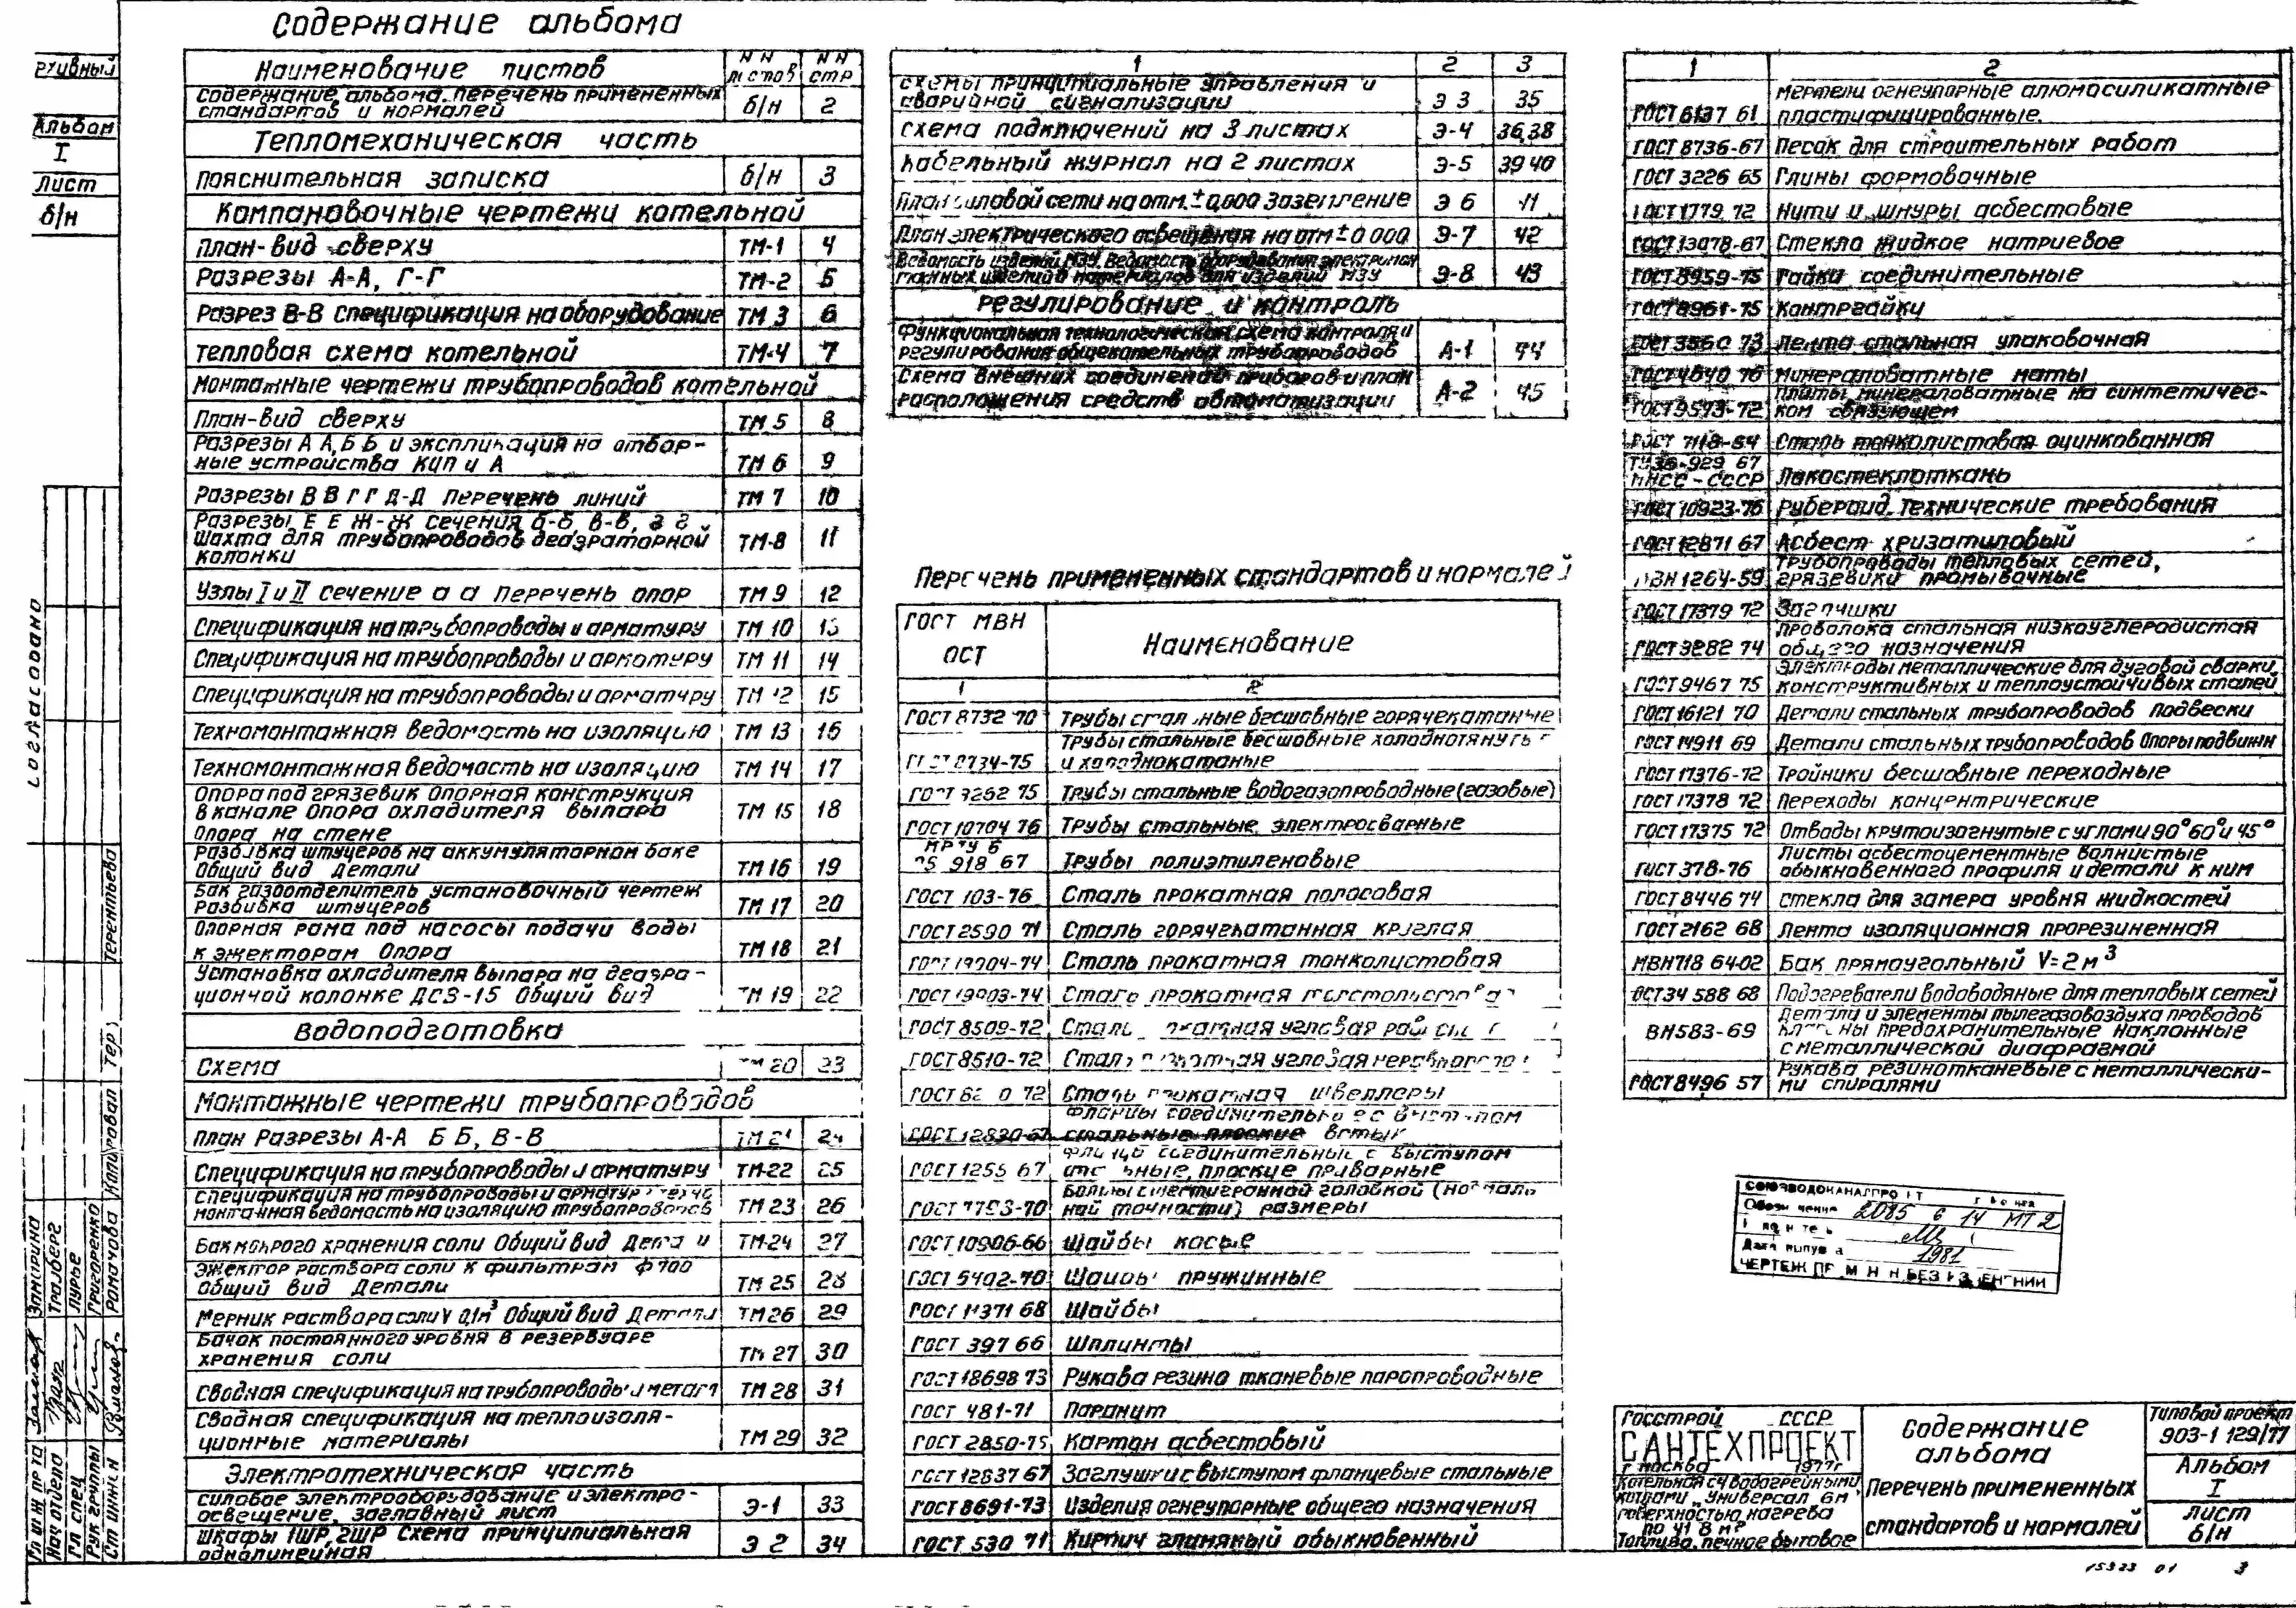 Содержание альбома
Наименование листов | НН листов | НН стр
Содержание альбома. перечень примененных стандартов и нормалей | б/н | 2
Тепломеханическая часть
пояснительная записка | б/н | 3
Компановочные чертежи котельной
План-вид сверху | ТМ-1 | 4
Разрезы А-А, Г-Г | ТМ-2 | 5
Разрез В-В Спецификация на оборудование | ТМ 3 | 6
тепловая схема котельной | ТМ-4 | 7
Монтажные чертежи трубопроводов котельной
План-вид сверху | ТМ 5 | 8
Разрезы А А, Б Б и экспликация на отбор-
ные устройства КИП и А | ТМ 6 | 9
Разрезы В В Г Г Д-Д перечень линий | ТМ 7 | 10
Разрезы Е Е Ж-Ж сечения б-б, в-в, г г
Шахта для трубопроводов деаэраторной
колонки | ТМ-8 | 11
Узлы I и II сечение а а перечень опор | ТМ 9 | 12
Спецификация на трубопроводы и арматуру | ТМ 10 | 13
Спецификация на трубопроводы и арматуру | ТМ 11 | 14
Спецификация на трубопроводы и арматуру | ТМ 12 | 15
Техномонтажная ведомость на изоляцию | ТМ 13 | 16
Техномонтажная ведомость на изоляцию | ТМ 14 | 17
Опора под грязевик Опорная конструкция
в канале Опора охладителя выпара
Опора на стене | ТМ 15 | 18
Разбивка штуцеров на аккумуляторном баке
Общий вид Детали | ТМ 16 | 19
Бак газоотделитель установочный чертеж
Разбивка штуцеров | ТМ 17 | 20
Опорная рама под насосы подачи воды
к эжекторам Опора | ТМ 18 | 21
Установка охладителя выпара на деаэра-
ционной колонке ДСЗ-15 Общий вид | ТМ 19 | 22
Водоподготовка
Схема | ТМ 20 | 23
Монтажные чертежи трубопроводов
план Разрезы А-А Б Б, В-В | ТМ 21 | 24
Спецификация на трубопроводы и арматуру | ТМ-22 | 25
Спецификация на трубопроводы и арматуру техно
монтажная ведомость на изоляцию трубопроводов | ТМ 23 | 26
Бак мокрого хранения соли Общий вид Детали | ТМ-24 | 27
Эжектор раствора соли к фильтрам ф 700
Общий вид Детали | ТМ 25 | 28
Мерник раствора соли V 0,1м³ Общий вид Детали | ТМ 26 | 29
Бачок постоянного уровня в резервуаре
хранения соли | ТМ 27 | 30
Сводная спецификация на трубопроводы и металл | ТМ 28 | 31
Сводная спецификация на теплоизоля-
ционные материалы | ТМ 29 | 32
Электротехническая часть
силовое электрооборудование и электро-
освещение, заглавный лист | Э-1 | 33
Шкафы 1ШР, 2ШР Схема принципиальная
однолинейная | Э 2 | 34
1 | 2 | 3
схемы принципиальные управления и
аварийной сигнализации | Э 3 | 35
схема подключений на 3 листах | Э-4 | 36,38
Кабельный журнал на 2 листах | Э-5 | 39 40
План силовой сети на отм. ± 0,000 Заземление | Э 6 | 41
План электрического освещения на отм ± 0 000 | Э-7 | 42
Э-8 | 43
Регулирование и контроль
Функциональная технологическая схема контроля и
регулирования общекотельных трубопроводов | А-1 | 44
Схема внешних соединений приборов и план
расположения средств автоматизации | А-2 | 45
Перечень примененных стандартов и нормалей
ГОСТ МВН
ОСТ | Наименование
1 | 2
ГОСТ 8732 70 | Трубы стальные бесшовные горячекатаные
ГОСТ 8734-75 | Трубы стальные бесшовные холоднотянутые
и холоднокатаные
ГОСТ 3262 75 | Трубы стальные водогазопроводные (газовые)
ГОСТ 10704 76 | Трубы стальные электросварные
МРТУ 6
05 918 67 | Трубы полиэтиленовые
ГОСТ 103-76 | Сталь прокатная полосовая
ГОСТ 2590 71 | Сталь горячекатанная круглая
ГОСТ 19904-74 | Сталь прокатная тонколистовая
ГОСТ 19903-74 | Сталь прокатная толстолистовая
ГОСТ 8509-72 | Сталь прокатная угловая
ГОСТ 8510-72 | Сталь прокатная угловая
ГОСТ 82 0 72 | Сталь прокатная швеллеры
ГОСТ 12830-67 | Фланцы соединительные с выступом
стальные плоские встык
ГОСТ 1255 67 | Фланцы соединительные с выступом
стальные, плоские приварные
ГОСТ 7798-70 | Болты с шестигранной головкой (нормаль
ной точности) размеры
ГОСТ 10906-66 | Шайбы косые
ГОСТ 6402-70 | Шайбы пружинные
ГОСТ 11371 68 | Шайбы
ГОСТ 397 66 | Шплинты
ГОСТ 18698 73 | Рукава резино тканевые паропроводные
ГОСТ 481-71 | Паронит
ГОСТ 2850-75 | Картон асбестовый
ГОСТ 12837 67 | Заглушки с выступом фланцевые стальные
ГОСТ 8691-73 | Изделия огнеупорные общего назначения
ГОСТ 530 71 | Кирпич глиняный обыкновенный
1 | 2
ГОСТ 6137 61 | мертели огнеупорные алюмосиликатные
пластифицированные.
ГОСТ 8736-67 | Песок для строительных работ
ГОСТ 3226 65 | Глины формовочные
ГОСТ 1779 72 | Нити и шнуры асбестовые
ГОСТ 13078-67 | Стекло жидкое натриевое
ГОСТ 8959-75 | Гайки соединительные
ГОСТ 8961-75 | Контргайки
ГОСТ 3560 73 | Лента стальная упаковочная
ГОСТ 4640 76 | минераловатные маты
ГОСТ 9573-72 | плиты минераловатные на синтетичес-
ком связующем
ГОСТ 7118-54 | Сталь тонколистовая оцинкованная
ТУ36-929 67
ММСС-СССР | Лакостеклоткань
ГОСТ 10923-76 | Рубероид. Технические требования
ГОСТ 12871 67 | Асбест хризатиловый
МВН 1264-59 | трубопроводы тепловых сетей,
грязевики промывочные
ГОСТ 17379 72 | Заглушки
ГОСТ 3282 74 | проволока стальная низкоуглеродистая
общего назначения
ГОСТ 9467 75 | Электроды металлические для дуговой сварки,
конструктивных и теплоустойчивых сталей
ГОСТ 16121 70 | Детали стальных трубопроводов подвески
ГОСТ 14911 69 | Детали стальных трубопроводов Опоры подвижн
ГОСТ 17376-72 | Тройники бесшовные переходные
ГОСТ 17378 72 | Переходы концентрические
ГОСТ 17375 72 | Отводы крутоизогнутые с углами 90° 60° и 45°
ГОСТ 378-76 | Листы асбестоцементные волнистые
обыкновенного профиля и детали к ним
ГОСТ 8446 74 | стекла для замера уровня жидкостей
ГОСТ 2162 68 | Лента изоляционная прорезиненная
МВН 718 64-02 | Бак прямоугольный V=2м³
ОСТ34 588 68 | Подогреватели водоводяные для тепловых сетей
ВН583-69 | Детали и элементы пылегазовоздуха проводов
клапаны предохранительные наклонные
с металлической диафрагмой
ГОСТ 8496 57 | Рукава резинотканевые с металлически-
ми спиралями
СОЮЗВОДОКАНАЛПРОЕКТ
2085 6 14 МП 2
Дата выпуска 1981
Альбом
I
Лист
б/н
Согласовано
Терентьева
Копировал
Гл инж пр та
Замарина
Нач отдела
Гралберг
Гл спец
Лурье
Рук группы
Григоренко
Ст инжен
Ромачова
Госстрой СССР
САНТЕХПРОЕКТ
г Москва 1977г
Котельная с 4 водогрейными
котлами „Универсал 6м"
поверхностью нагрева
по 41 8 м²
Топливо, печное бытовое
Содержание
альбома
Перечень примененных
стандартов и нормалей
Типовой проект
903-1 129/77
Альбом
I
лист
б/н
15323 01 3